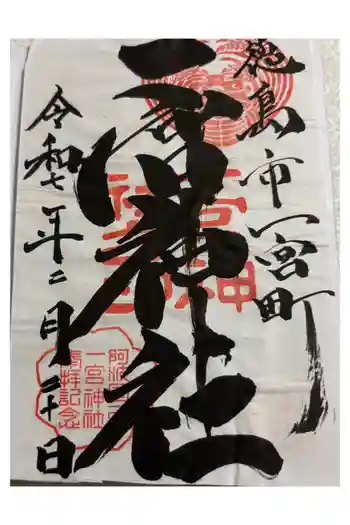 徳島市一宮町
一宮神社
令和七年二月二十日
一宮神社
阿波国
一宮神社
参拝記念